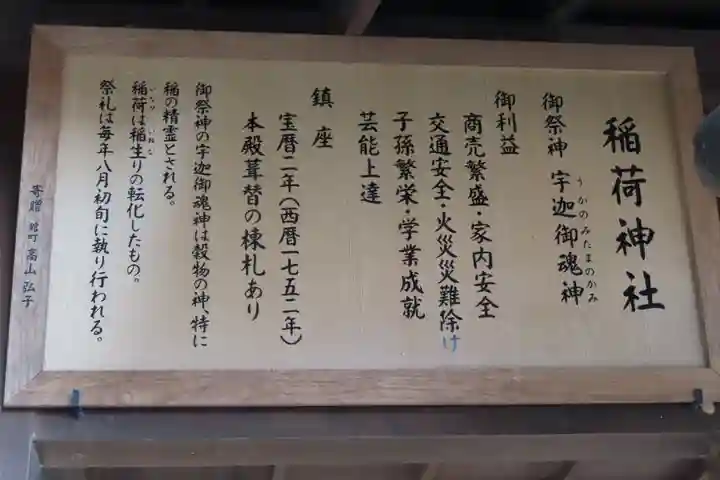 稲荷神社
御祭神 宇迦御魂神
うかのみたまのかみ
御利益
商売繁盛・家内安全
交通安全・火災災難除け
子孫繁栄・学業成就
芸能上達
鎮座
宝暦二年(西暦一七五二年)
本殿葺替の棟札あり
御祭神の宇迦御魂神は穀物の神、特に
稲の精霊とされる。
稲荷は稲生りの転化したもの。
いなり
いねな
祭礼は毎年八月初旬に執り行われる。
寄贈 町 高山弘子